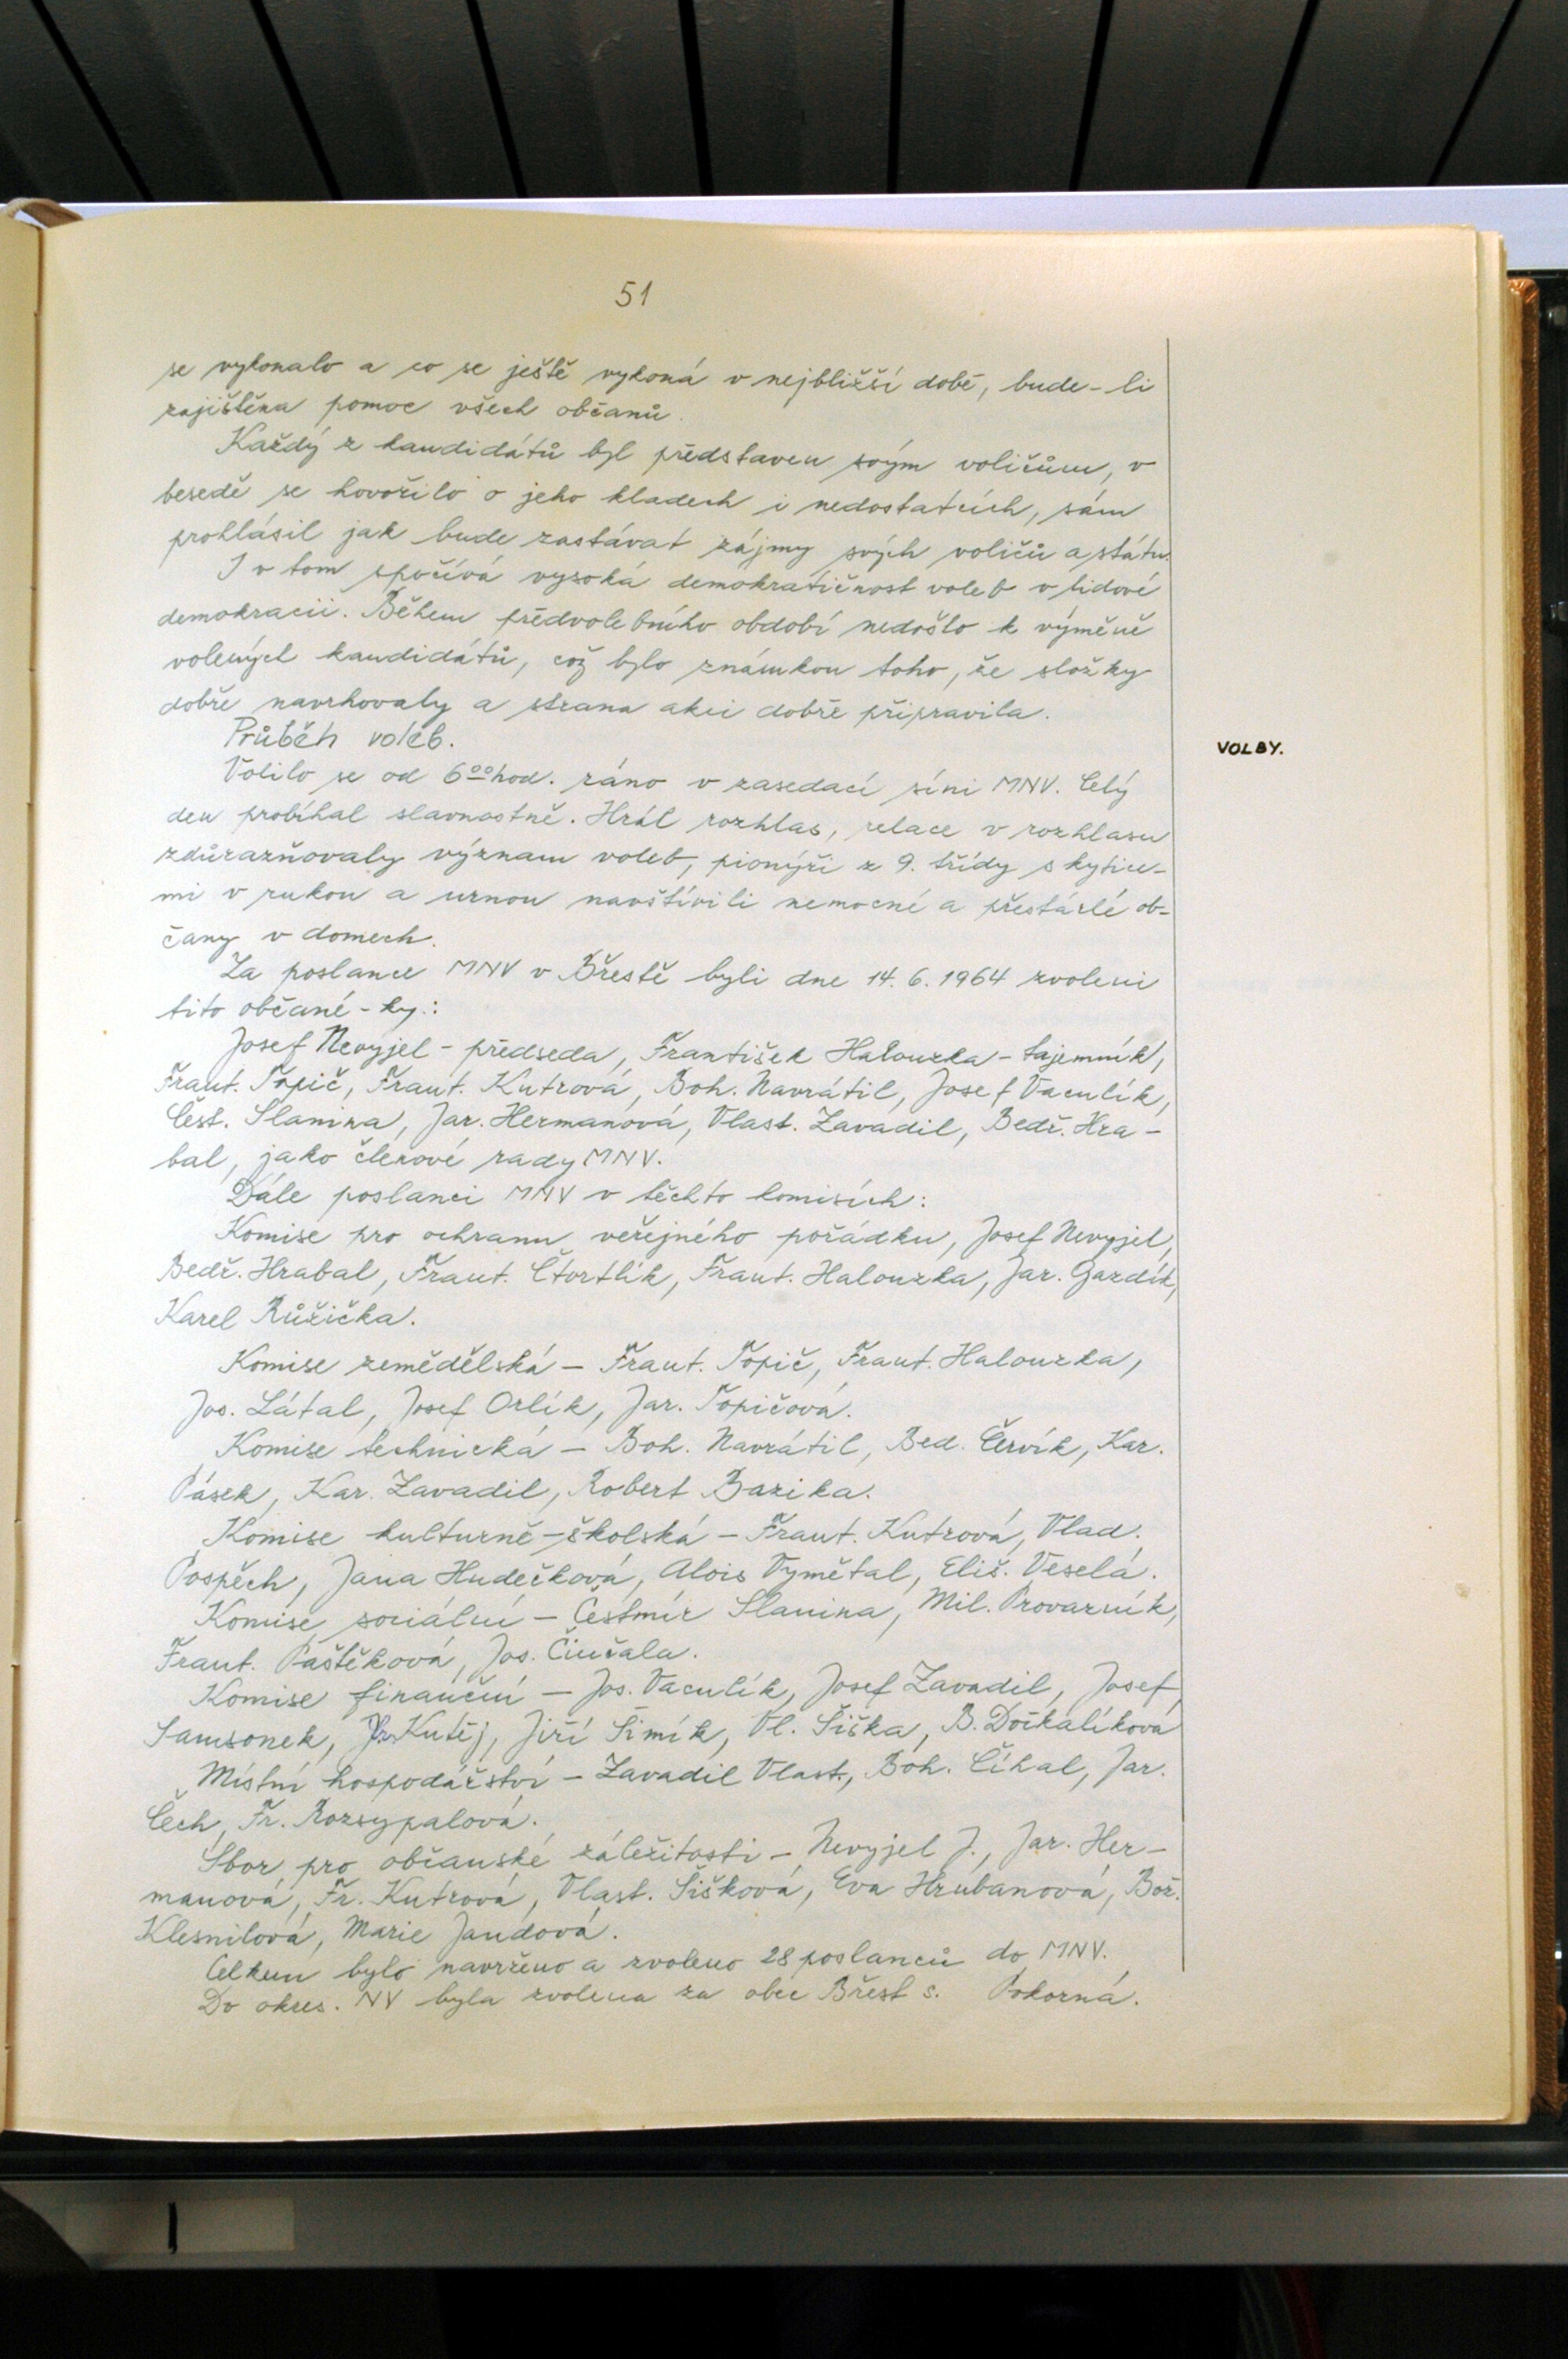 51
se vykonalo a co se ještě vykoná v nejbližší době, bude-li
zajištěna pomoc všech občanů.
Každý z kandidátů byl představen svým voličům, v
besedě se hovořilo o jeho kladech i nedostatcích, sám
prohlásil jak bude zastávat zájmy svých voličů a státu.
I v tom spočívá vysoká demokratičnost voleb v lidové
demokracii. Během předvolebního období nedošlo k výměně
volených kandidátů, což bylo známkou toho, že složky
dobře navrhovaly a strana akci dobře připravila.
Průběh voleb.
VOLBY.
Volilo se od 6⁰⁰ hod. ráno v zasedací síni MNV. Celý
den probíhal slavnostně. Hrál rozhlas, relace v rozhlasu
zdůrazňovaly význam voleb, pionýři z 9. třídy s kytice-
mi v rukou a urnou navštívili nemocné a přestárlé ob-
čany v domech.
Za poslance MNV v Břestě byli dne 14. 6. 1964 zvoleni
tito občané-ky.:
Josef Nevyjel - předseda, František Halouzka - tajemník,
Frant. Topič, Frant. Kutrová, Boh. Navrátil, Josef Vaculík,
Čest. Slanina, Jar. Hermanová, Vlast. Zavadil, Bedř. Hra-
bal, jako členové rady MNV.
Dále poslanci MNV v těchto komisích:
Komise pro ochranu veřejného pořádku, Josef Nevyjel,
Bedř. Hrabal, Frant. Čtvrtlík, Frant. Halouzka, Jar. Gazdík,
Karel Růžička.
Komise zemědělská - Frant. Topič, Frant. Halouzka,
Jos. Látal, Josef Orlík, Jar. Topičová.
Komise technická - Boh. Navrátil, Bed. Červík, Kar.
Pásek, Kar. Zavadil, Robert Bazika.
Komise kulturně-školská - Frant. Kutrová, Vlad.
Pospěch, Jana Hudečková, Alois Vymětal, Eliš. Veselá.
Komise sociální - Čestmír Slanina, Mil. Provazník,
Frant. Paštěková, Jos. Činčala.
Komise finanční - Jos. Vaculík, Josef Zavadil, Josef
Samsonek, Kutěj, Jiří Šimík, Vl. Šiška, B. Dočkalíková
Místní hospodářství - Zavadil Vlast., Boh. Číhal, Jar.
Čech, Fr. Rozsypalová.
Sbor pro občanské záležitosti - Nevyjel J., Jar. Her-
manová, Fr. Kutrová, Vlast. Šišková, Eva Hrubanová, Bož.
Klesnilová, Marie Jandová.
Celkem bylo navrženo a zvoleno 28 poslanců do MNV.
Do okres. NV byla zvolena za obec Břest s. Pokorná.